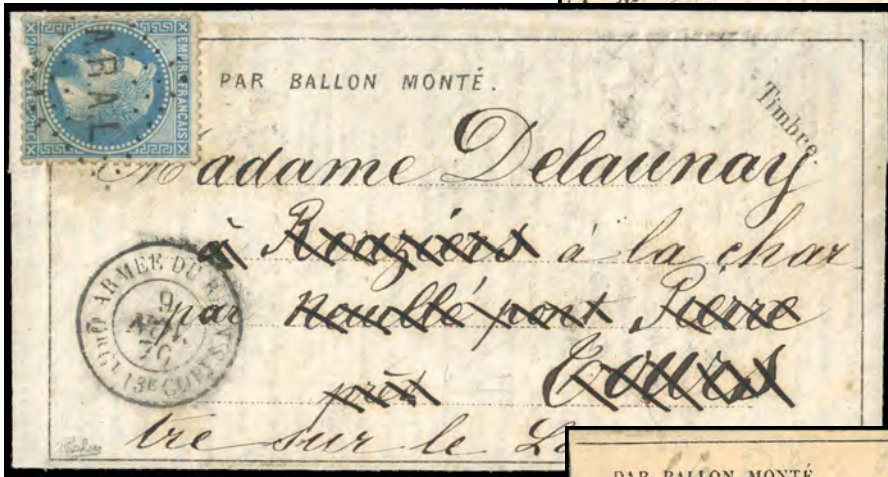 EMPIRE FRANÇAIS
A.R.A.L
PAR BALLON MONTÉ.
Timbre.
Madame Delaunay
à Rouziers à la char
par Neuillé pont Pierre
près Tours
tre sur le
ARMÉE DU
13E CORPS
PAR BALLON MONTÉ